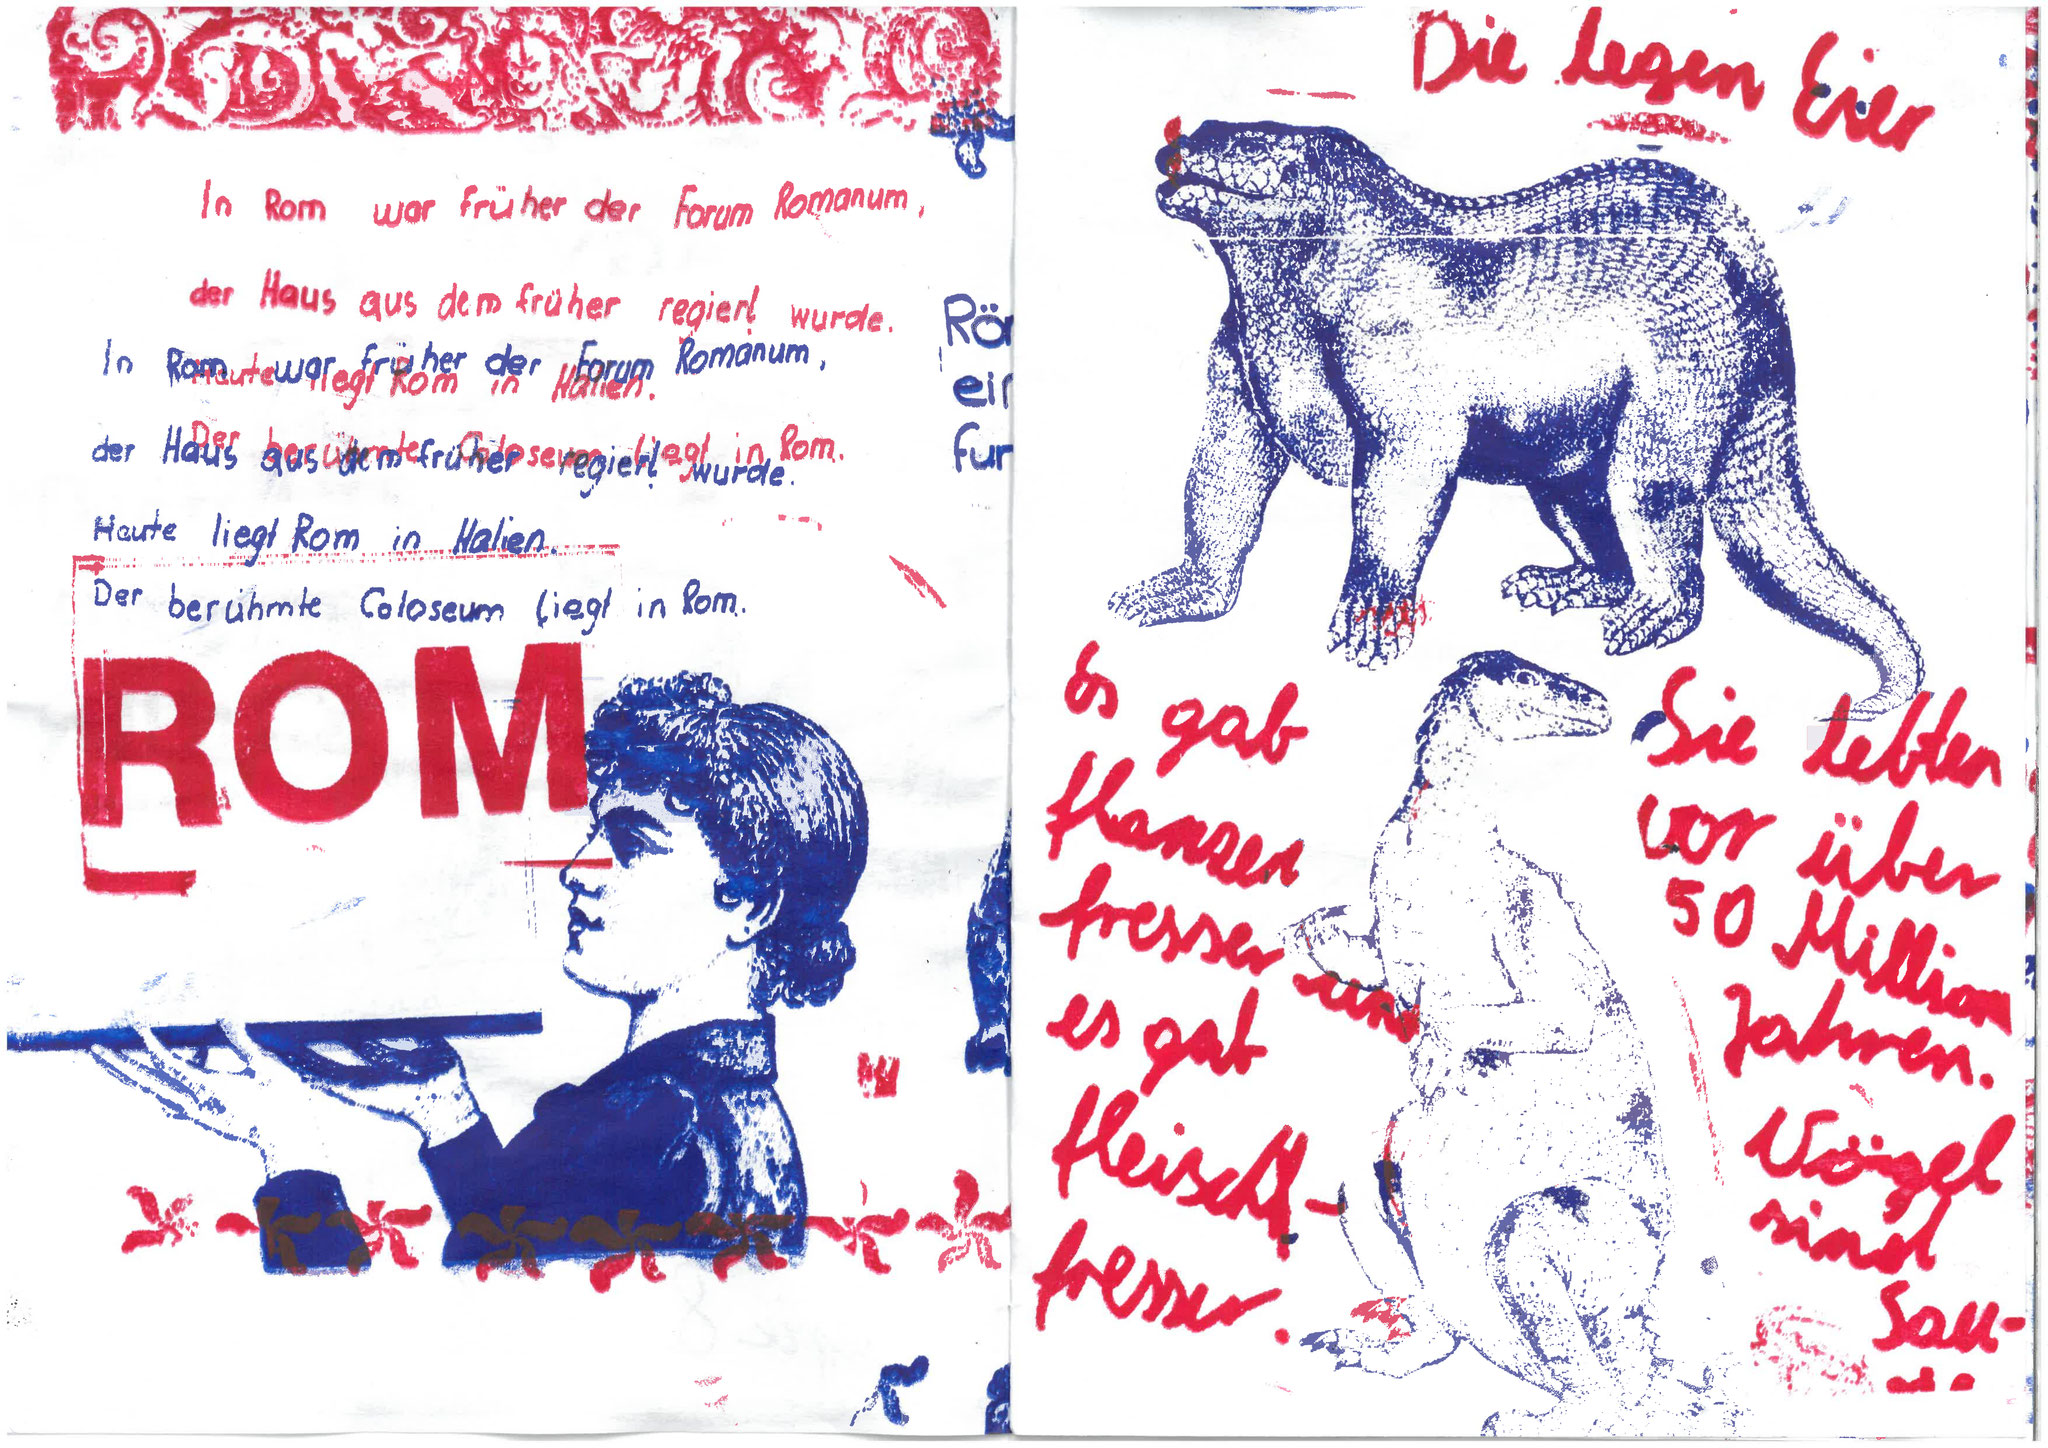 In Rom war früher der Forum Romanum,
der Haus aus dem früher regiert wurde.
Heute liegt Rom in Italien.
Der berühmte Coloseum liegt in Rom.
In Rom war früher der Forum Romanum,
der Haus aus dem früher regiert wurde.
Heute liegt Rom in Italien.
Der berühmte Coloseum liegt in Rom.
ROM
Rö
ein
fur
Die legen Eier
Es gab
flanzen
fresser und
es gab
fleisch-
fresser.
Sie lebten
vor über
50 Million
Jahren.
Vögel
sind
Sau-